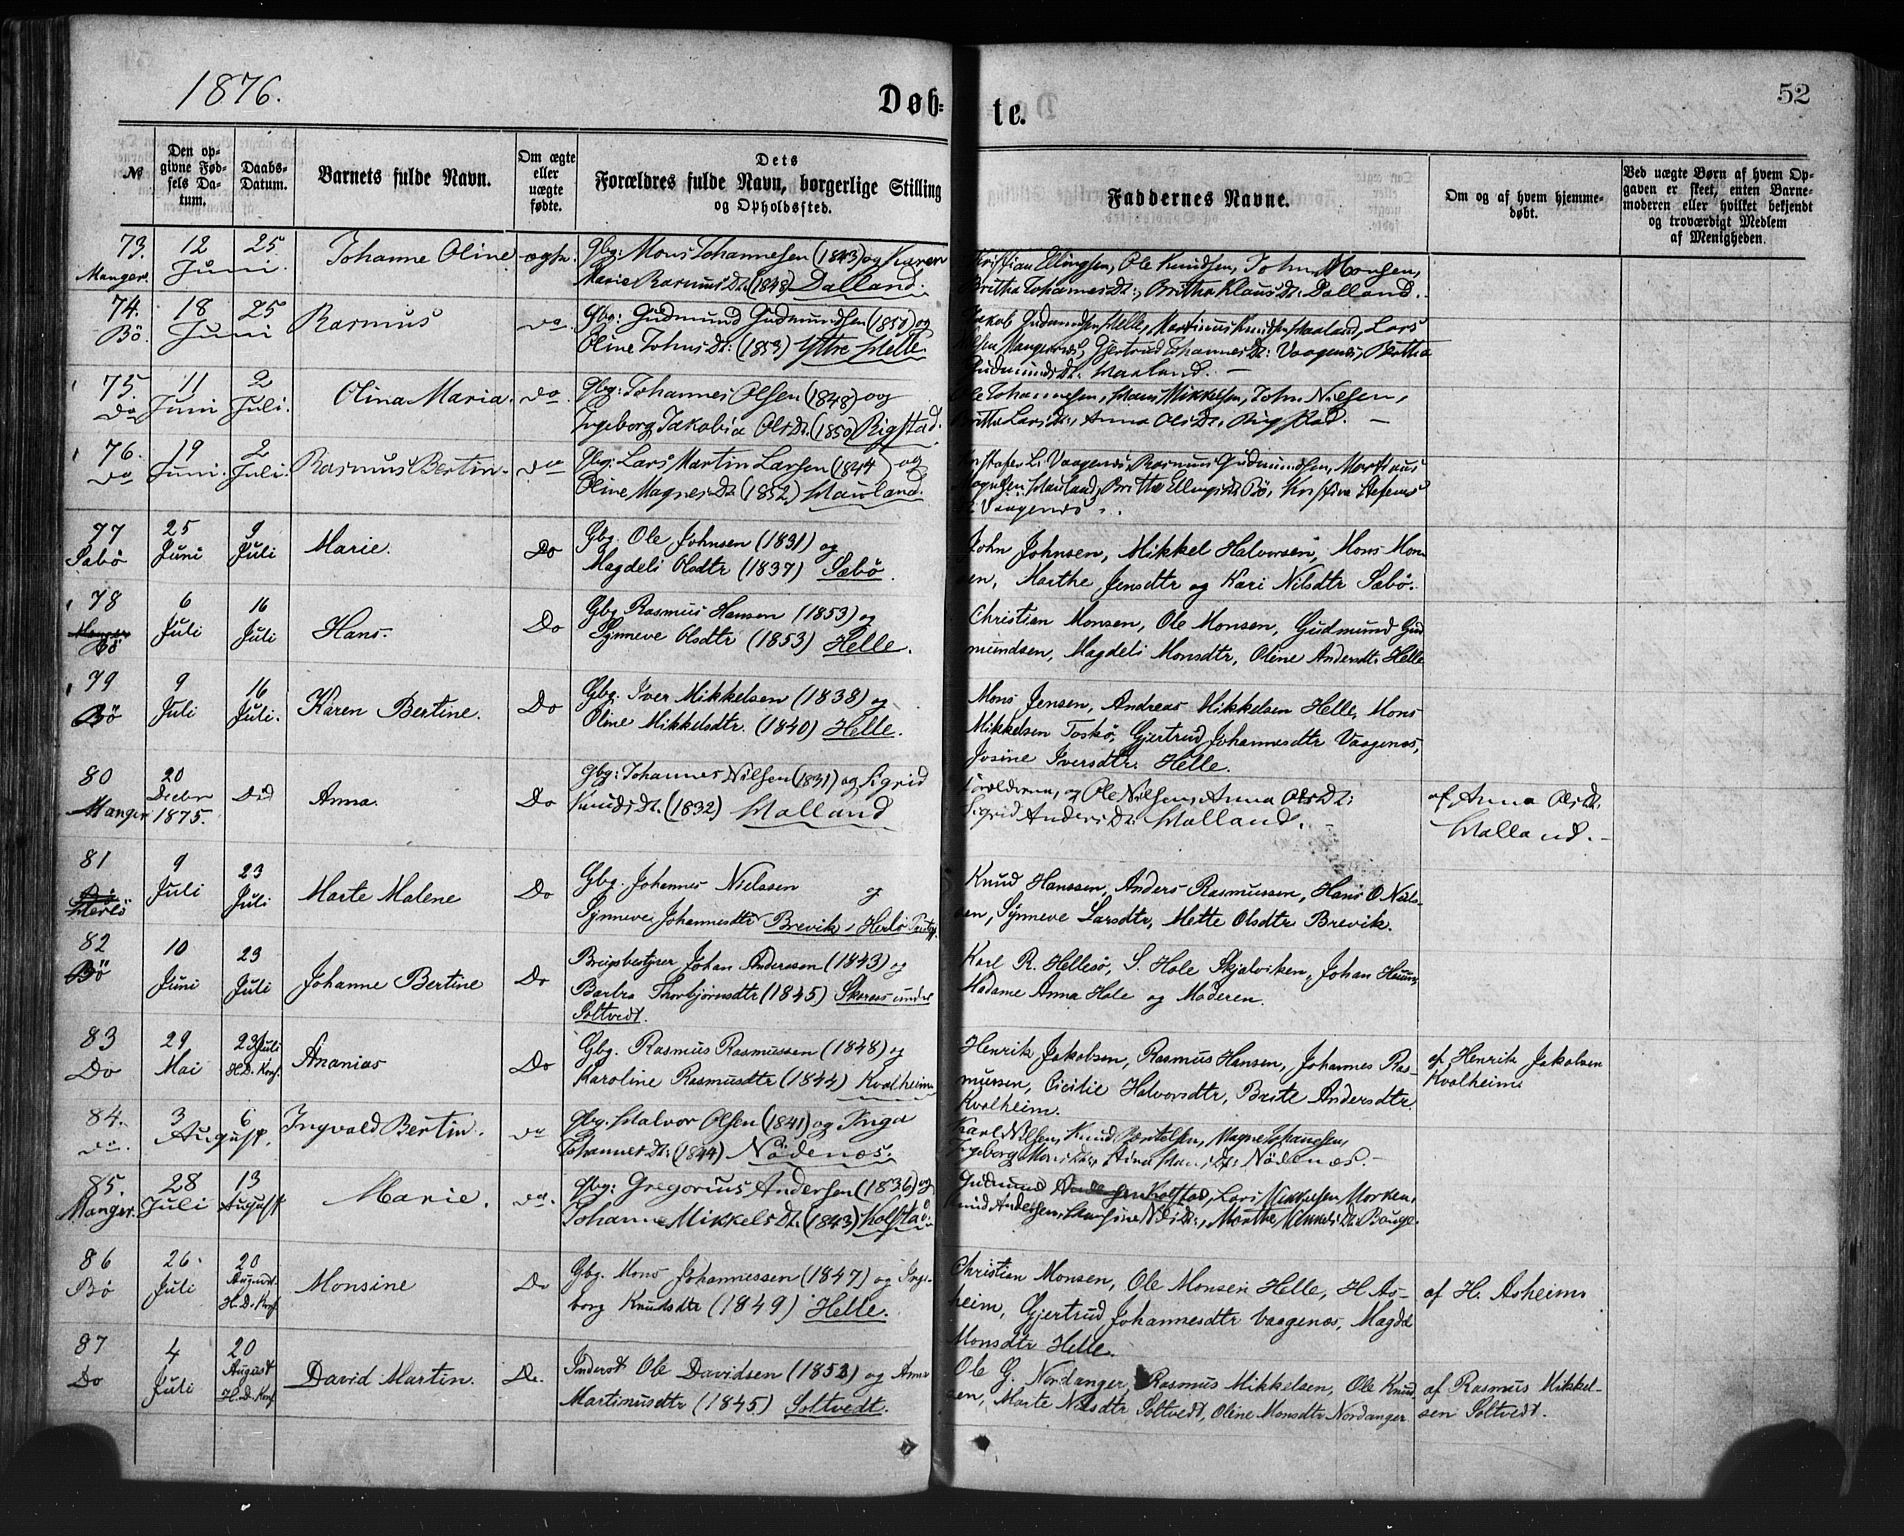 1876.
Døb-
te.
52
№
Den op-
givne Fød-
sels Da-
tum.
Daabs-
Datum.
Barnets fulde Navn.
Om ægte
eller
uægte
fødte.
Dets
Forældres fulde Navn, borgerlige Stilling
og Opholdssted.
Faddernes Navne.
Om og af hvem hjemme-
døbt.
Ved uægte Børn af hvem Op-
gaven er skeet, enten Barne-
moderen eller hvilket bekjendt
og troværdigt Medlem
af Menigheden.
73. 12 25 Johanne Oline ægte. Gbg: Mons Johannesen (1843) og Karen
Manger. Juni. Marie Rasmus Dt: (1848) Dalland.
Kristian Ellingsen, Ole Knudsen, John Monsen,
Britha Johannes Dt:, Britha Klaus Dt: Dalland.
74. 18 25 Rasmus do. Gbg: Gudmund Gudmundsen (1850) og
Bö. Juni Oline Johns Dt: (1853) Yttre Helle
Jakob Gudmundsen Helle, Martinus Knudsen Hauland, Lars
Gjertrud Johannes Dt: Vaagenes, Bertha
Gudmunds Dt: Hauland.
75. 11 2 Olina Maria. do. Gbg: Johannes Olsen (1848) og
Do Juni Juli. Ingeborg Jakobia Ols Dt. (1850) Rigstad.
Ole Johannesen, Hans Mikkelsen, John Nilsen,
Britha Lars Dt:, Anna Ols Dt. Rigstad.
76. 19 2 Rasmus Bertin. do Gbg: Lars Martin Larsen (1844) og
Do Juni. Juli. Oline Magnes Dt. (1852) Hauland.
Kristofer L. Vaagenes, Rasmus Gudmundsen, Martinus
Mognesen Hauland, Britha Ellings Dt Bö, Kristine Stefens
Dt. Vaagenes.
77 25 9 Marie. Do Gbg. Ole Johnsen (1831) og
Sæbö Juni Juli Magdeli Olsdtr (1837) Sæbö.
John Johnsen, Mikkel Halvorsen, Mons Mon-
sen, Marthe Jensdtr og Kari Nilsdtr Sæbö.
78 6 16 Hans. Do Gbg Rasmus Hansen (1853) og
Manger Bö Juli Juli Synneve Olsdtr (1853) Helle.
Christian Monsen, Ole Monsen, Gudmund Gud-
mundsen, Magdeli Monsdtr, Oline Andersdt: Helle
79 9 16 Karen Bertine. Do Gbg. Iver Mikkelsen (1838) og
Bö Juli Juli. Oline Mikkelsdtr. (1840) Helle.
Mons Jensen, Andreas Mikkelsen Helle, Mons
Mikkelsen Toskö, Gjertrud Johannesdtr Vaagenes,
Josine Iversdtr. Helle.
80 20 Anna. Do Gbg: Johannes Nilsen (1831) og Sigrid
Manger Decbr 1875. Knuds Dt. (1832) Halland
Forældrene, og Ole Nilsen, Anna Ols Dt:
Sigrid Anders Dt: Halland.
af Anna Ols Dt.
Halland.
81 9 23 Marte Malene Do Gbg Johannes Nielssen og
Do Herlö Juli Juli Synneve Johannesdtr Brevik, Herlö
Knud Hanssen, Anders Rasmussen, Hans O Niels-
sen, Synneve Larsdtr, Mette Olsdtr Brevik.
82 10 23 Johanne Bertine Do Brugsbestyrer Johan Anderssen (1843) og
Bö Juni Juli Barbra Thorbjörnsdtr (1845) Skeræs under
Soltvedt.
Karl R. Hellesö, S. Hole Skjelviken, Johan
Madame Anna Hole og Moderen.
83 29 23 Juli Ananias Do Gbg. Rasmus Rasmussen (1848) og
Do Mai H.D. Konf. Karoline Rasmusdtr (1844) Kvalheim
Henrik Jakobsen, Rasmus Hansen, Johannes Ras-
mussen, Cicilie Halvorsdtr, Brite Andersdtr
Kvalheim.
af Henrik Jakobsen
Kvalheim
84. 3 6 Ingvald Bertin. do Gbg: Halvor Olsen (1841) og Inga
do. August. Johannes Dt: (1844) Nödenæs.
Karl Nilsen, Knud Bertelsen, Magne Johannesen,
Ingeborg Mons Dt:, Stina Hans Dt: Nödenæs.
85. 28 13 Marie. do. Gbg: Gregorius Andersen (1836) og
Manger. Juli August Johanne Mikkels Dt. (1843) Kolstad
Gudmund Andersen Kolstad, Lars Mikkelsen Morken,
Knud Andersen, Hansine Nils Dt:, Marthe Mikkels Dt. Bauge.
86 26 20 Monsine Do Gbg. Mons Johannessen (1847) og Inge-
Bö Juli August H.D. Konf. borg Knudsdtr (1849) Helle.
Christian Monsen, Ole Monsen Helle, H As-
heim, Gjertrud Johannesdtr Vaagenes, Magde
Monsdtr Helle.
af H. Asheim
87 4 20 David Martin. Do. Inderst Ole Davidsen (1852) og Anna
Do Juli August H.D. Konf Martinusdtr (1845) Soltvedt.
Ole G. Nordanger, Rasmus Mikkelsen, Ole Knud-
sen, Marte Nilsdtr Soltvedt, Oline Monsdtr Nordanger
af Rasmus Mikkel-
sen Soltvedt.